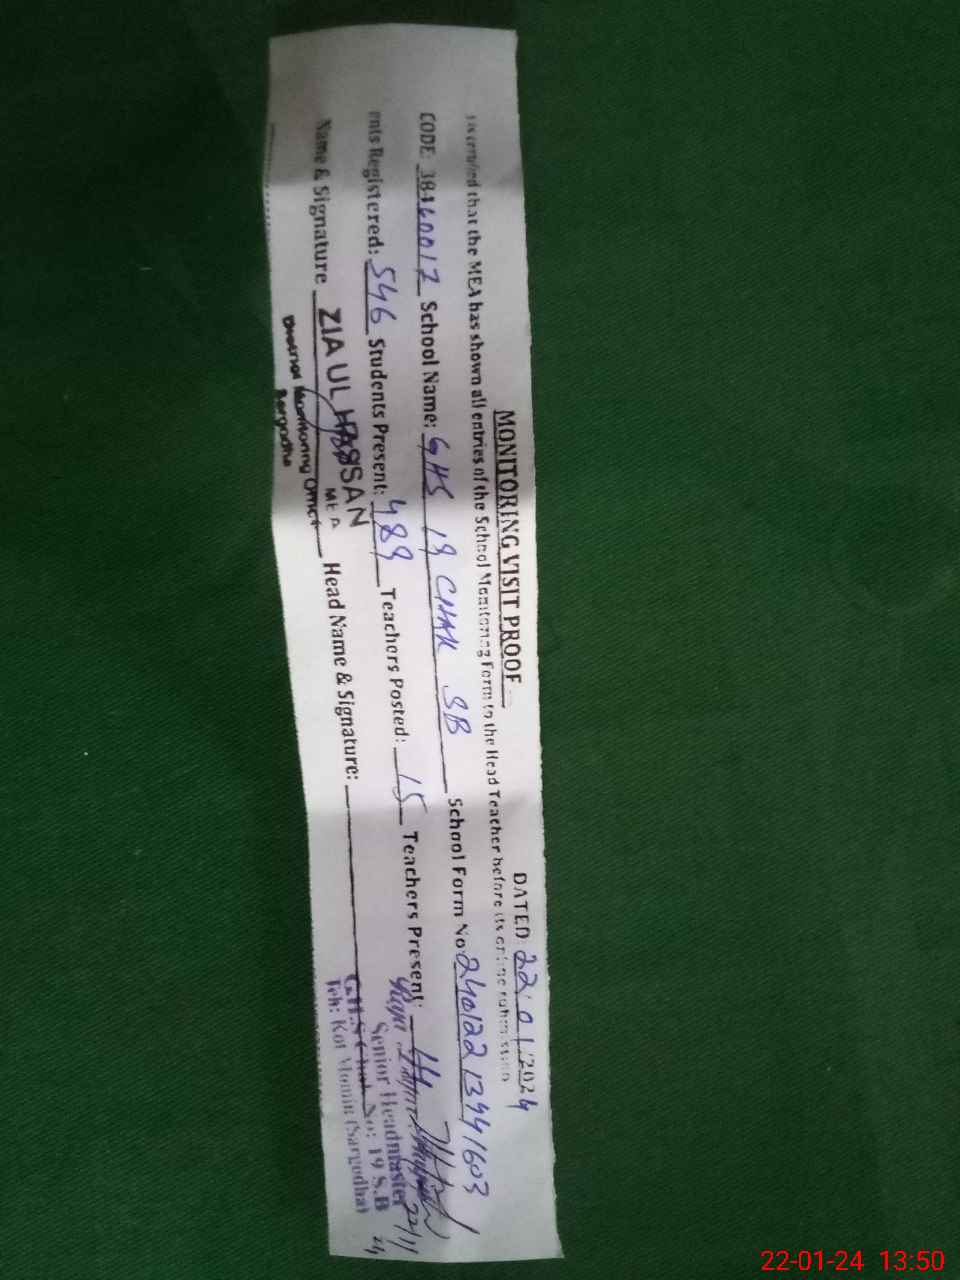 MONITORING VISIT PROOF
DATED: 22.01.2024
is certified that the MEA has shown all entries of the School Monitoring Form to the Head Teacher before its online submission
CODE: 38460017 School Name: GHS 19 CHAK SB School Form No 24012213441603
ents Registered: 546 Students Present: 489 Teachers Posted: 15 Teachers Present: 14
Name & Signature ZIA UL HASSAN Head Name & Signature:
MEA
District Monitoring Officer
Sargodha
Senior Headmaster
G.H.S Chak No: 19 S.B
Teh: Kot Momin (Sargodha)
22-01-24 13:50